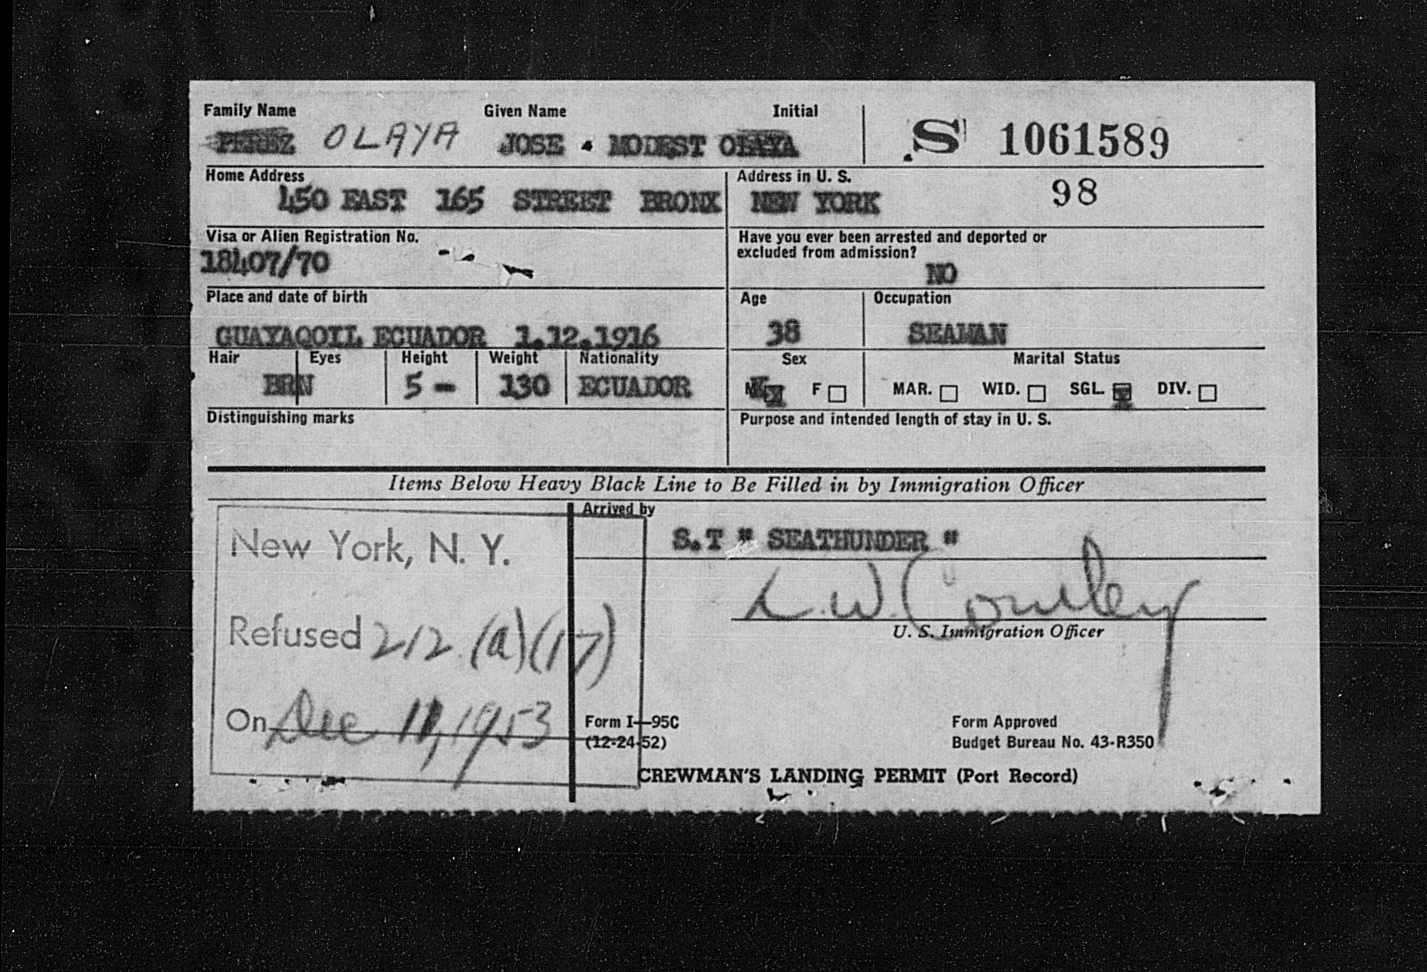 Family Name Given Name Initial
PEREZ OLAYA JOSE - MODEST OLAYA S 1061589
Home Address Address in U. S.
450 EAST 165 STREET BRONX NEW YORK 98
Visa or Alien Registration No. Have you ever been arrested and deported or
excluded from admission?
18407/70 NO
Place and date of birth Age Occupation
GUAYAQOIL ECUADOR 1.12.1916 38 SEAMAN
Hair Eyes Height Weight Nationality Sex Marital Status
BRN 5 - 130 ECUADOR M F MAR. WID. SGL. DIV.
Distinguishing marks Purpose and intended length of stay in U. S.
Items Below Heavy Black Line to Be Filled in by Immigration Officer
Arrived by
New York, N. Y. S.T " SEATHUNDER "
L. W. Cowley
U. S. Immigration Officer
Refused 212 (a)(17)
On Dec 11, 1953
Form I—95C Form Approved
(12-24-52) Budget Bureau No. 43-R350
CREWMAN'S LANDING PERMIT (Port Record)